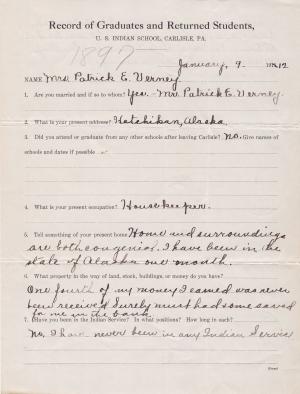 Record of Graduates and Returned Students,
U. S. INDIAN SCHOOL, CARLISLE, PA.
1897
January, 9. 1912
NAME Mrs Patrick E. Verney
1. Are you married and if so to whom? Yes. Mr Patrick E. Verney.
2. What is your present address? Ketchikan, Alaska
3. Did you attend or graduate from any other schools after leaving Carlisle? No. Give names of
schools and dates if possible
4. What is your present occupation? Housekeeper.
5. Tell something of your present home Home and surroundings
are both congenial. I have been in the
state of Alaska one month.
6. What property in the way of land, stock, buildings, or money do you have?
One fourth of my money I earned was never
been received surely must had some saved
for me in the bank.
7. Have you been in the Indian Service? In what positions? How long in each?
No. I have never been in any Indian Service
(Over)